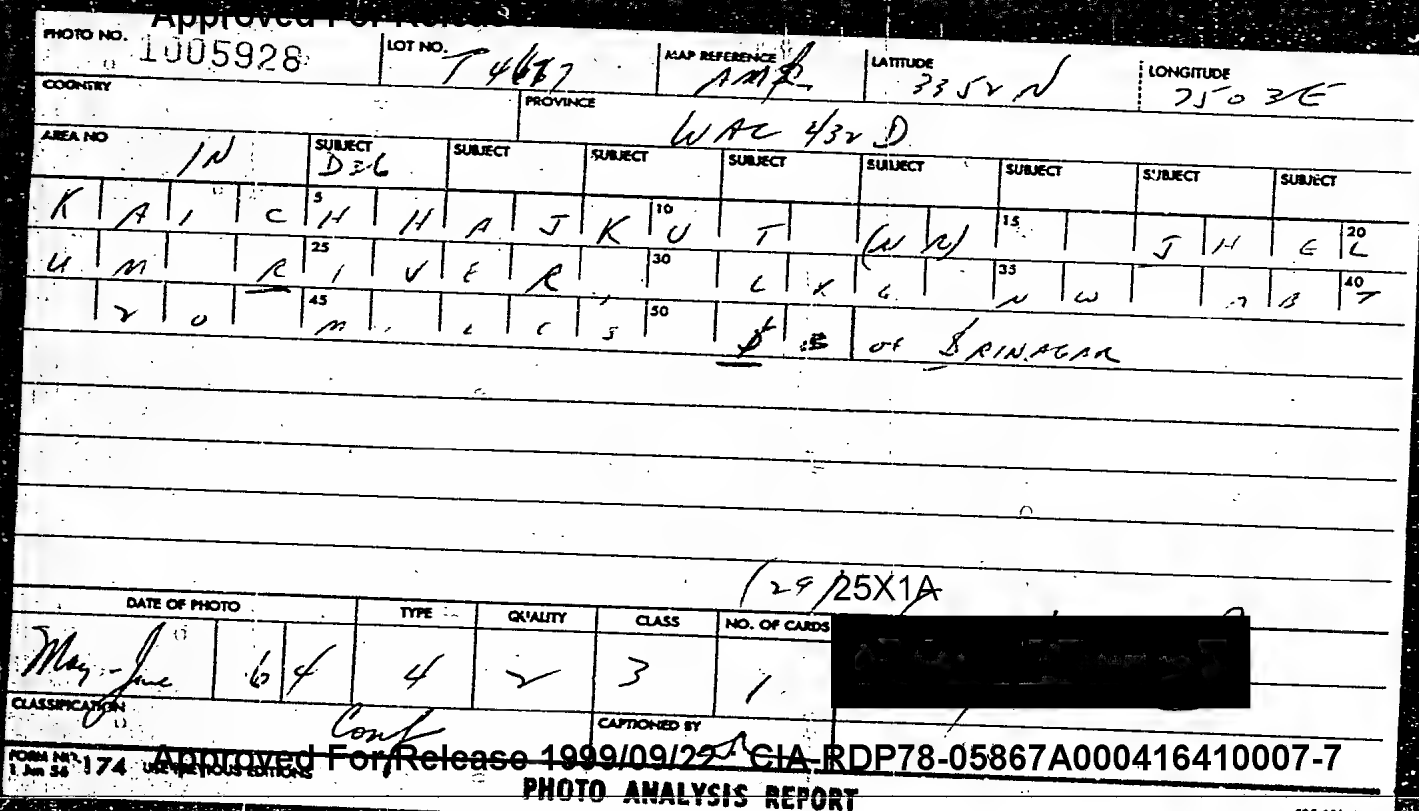 Approved For Release
PHOTO NO. 1005928 LOT NO. T 4667 MAP REFERENCE AMR LATITUDE 3352 N LONGITUDE 7503 E
COUNTRY PROVINCE WAC 432 D
AREA NO IN SUBJECT D36 SUBJECT SUBJECT SUBJECT SUBJECT SUBJECT SUBJECT SUBJECT
K A I C 5 H H A J K 10 U T (N N) 15 J H E 20 L
U M R 25 I V E R , 30 L K G 35 N W A B 40 T
2 0 45 M I L E S 50 S of SRINAGAR
(29 25X1A
DATE OF PHOTO TYPE QUALITY CLASS NO. OF CARDS
May-June 64 4 2 3 1
CLASSIFICATION Conf CAPTIONED BY
FORM NO. 174 USE PREVIOUS EDITIONS
1 Jun 56
Approved For Release 1999/09/22 CIA-RDP78-05867A000416410007-7
PHOTO ANALYSIS REPORT